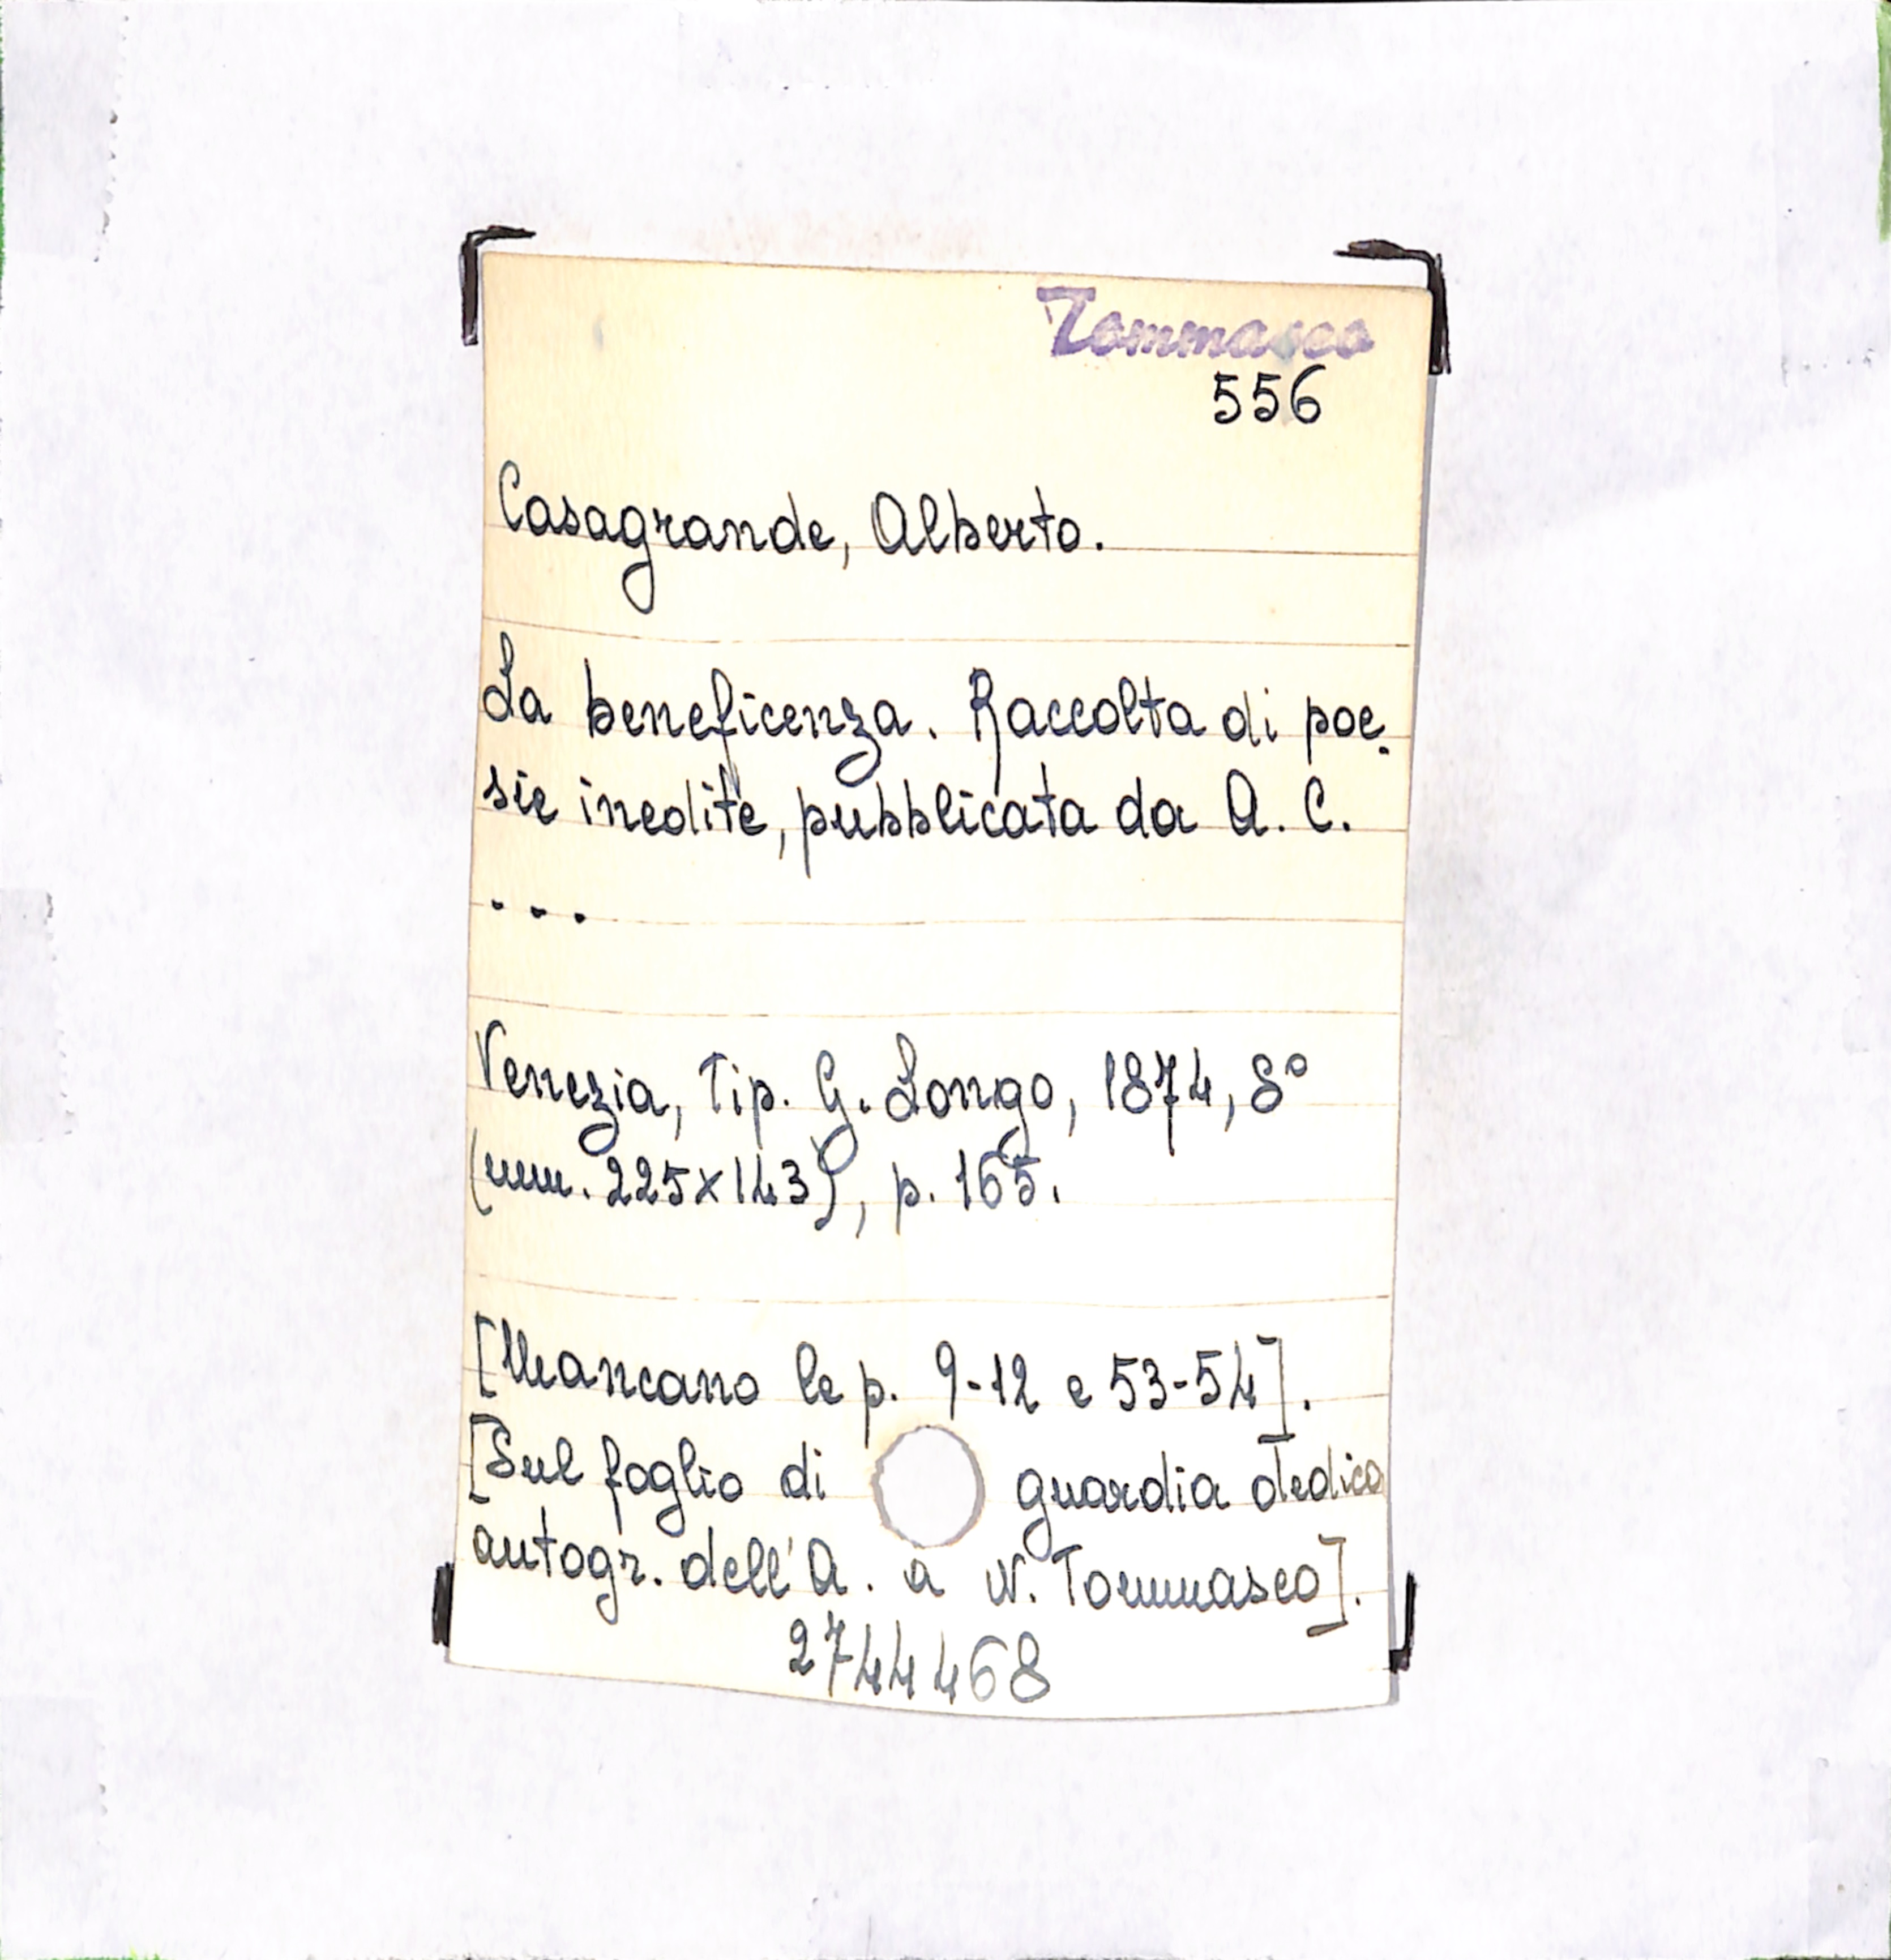 Tommaseo
556
Casagrande, Alberto.
La beneficenza. Raccolta di poe-
sie inedite, pubblicata da A. C.
...
Venezia, Tip. G. Longo, 1874, 8°
(mm. 225x143), p. 165.
[Mancano le p. 9-12 e 53-54].
[Sul foglio di guardia dedica
autogr. dell'A. a N. Tommaseo].
2744468